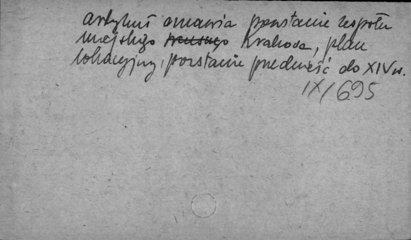 artykuł omawia powstanie zespołu
miejskiego Krakowa, plan
lokacyjny, powstanie przedmieść do XIV w.
IX/695